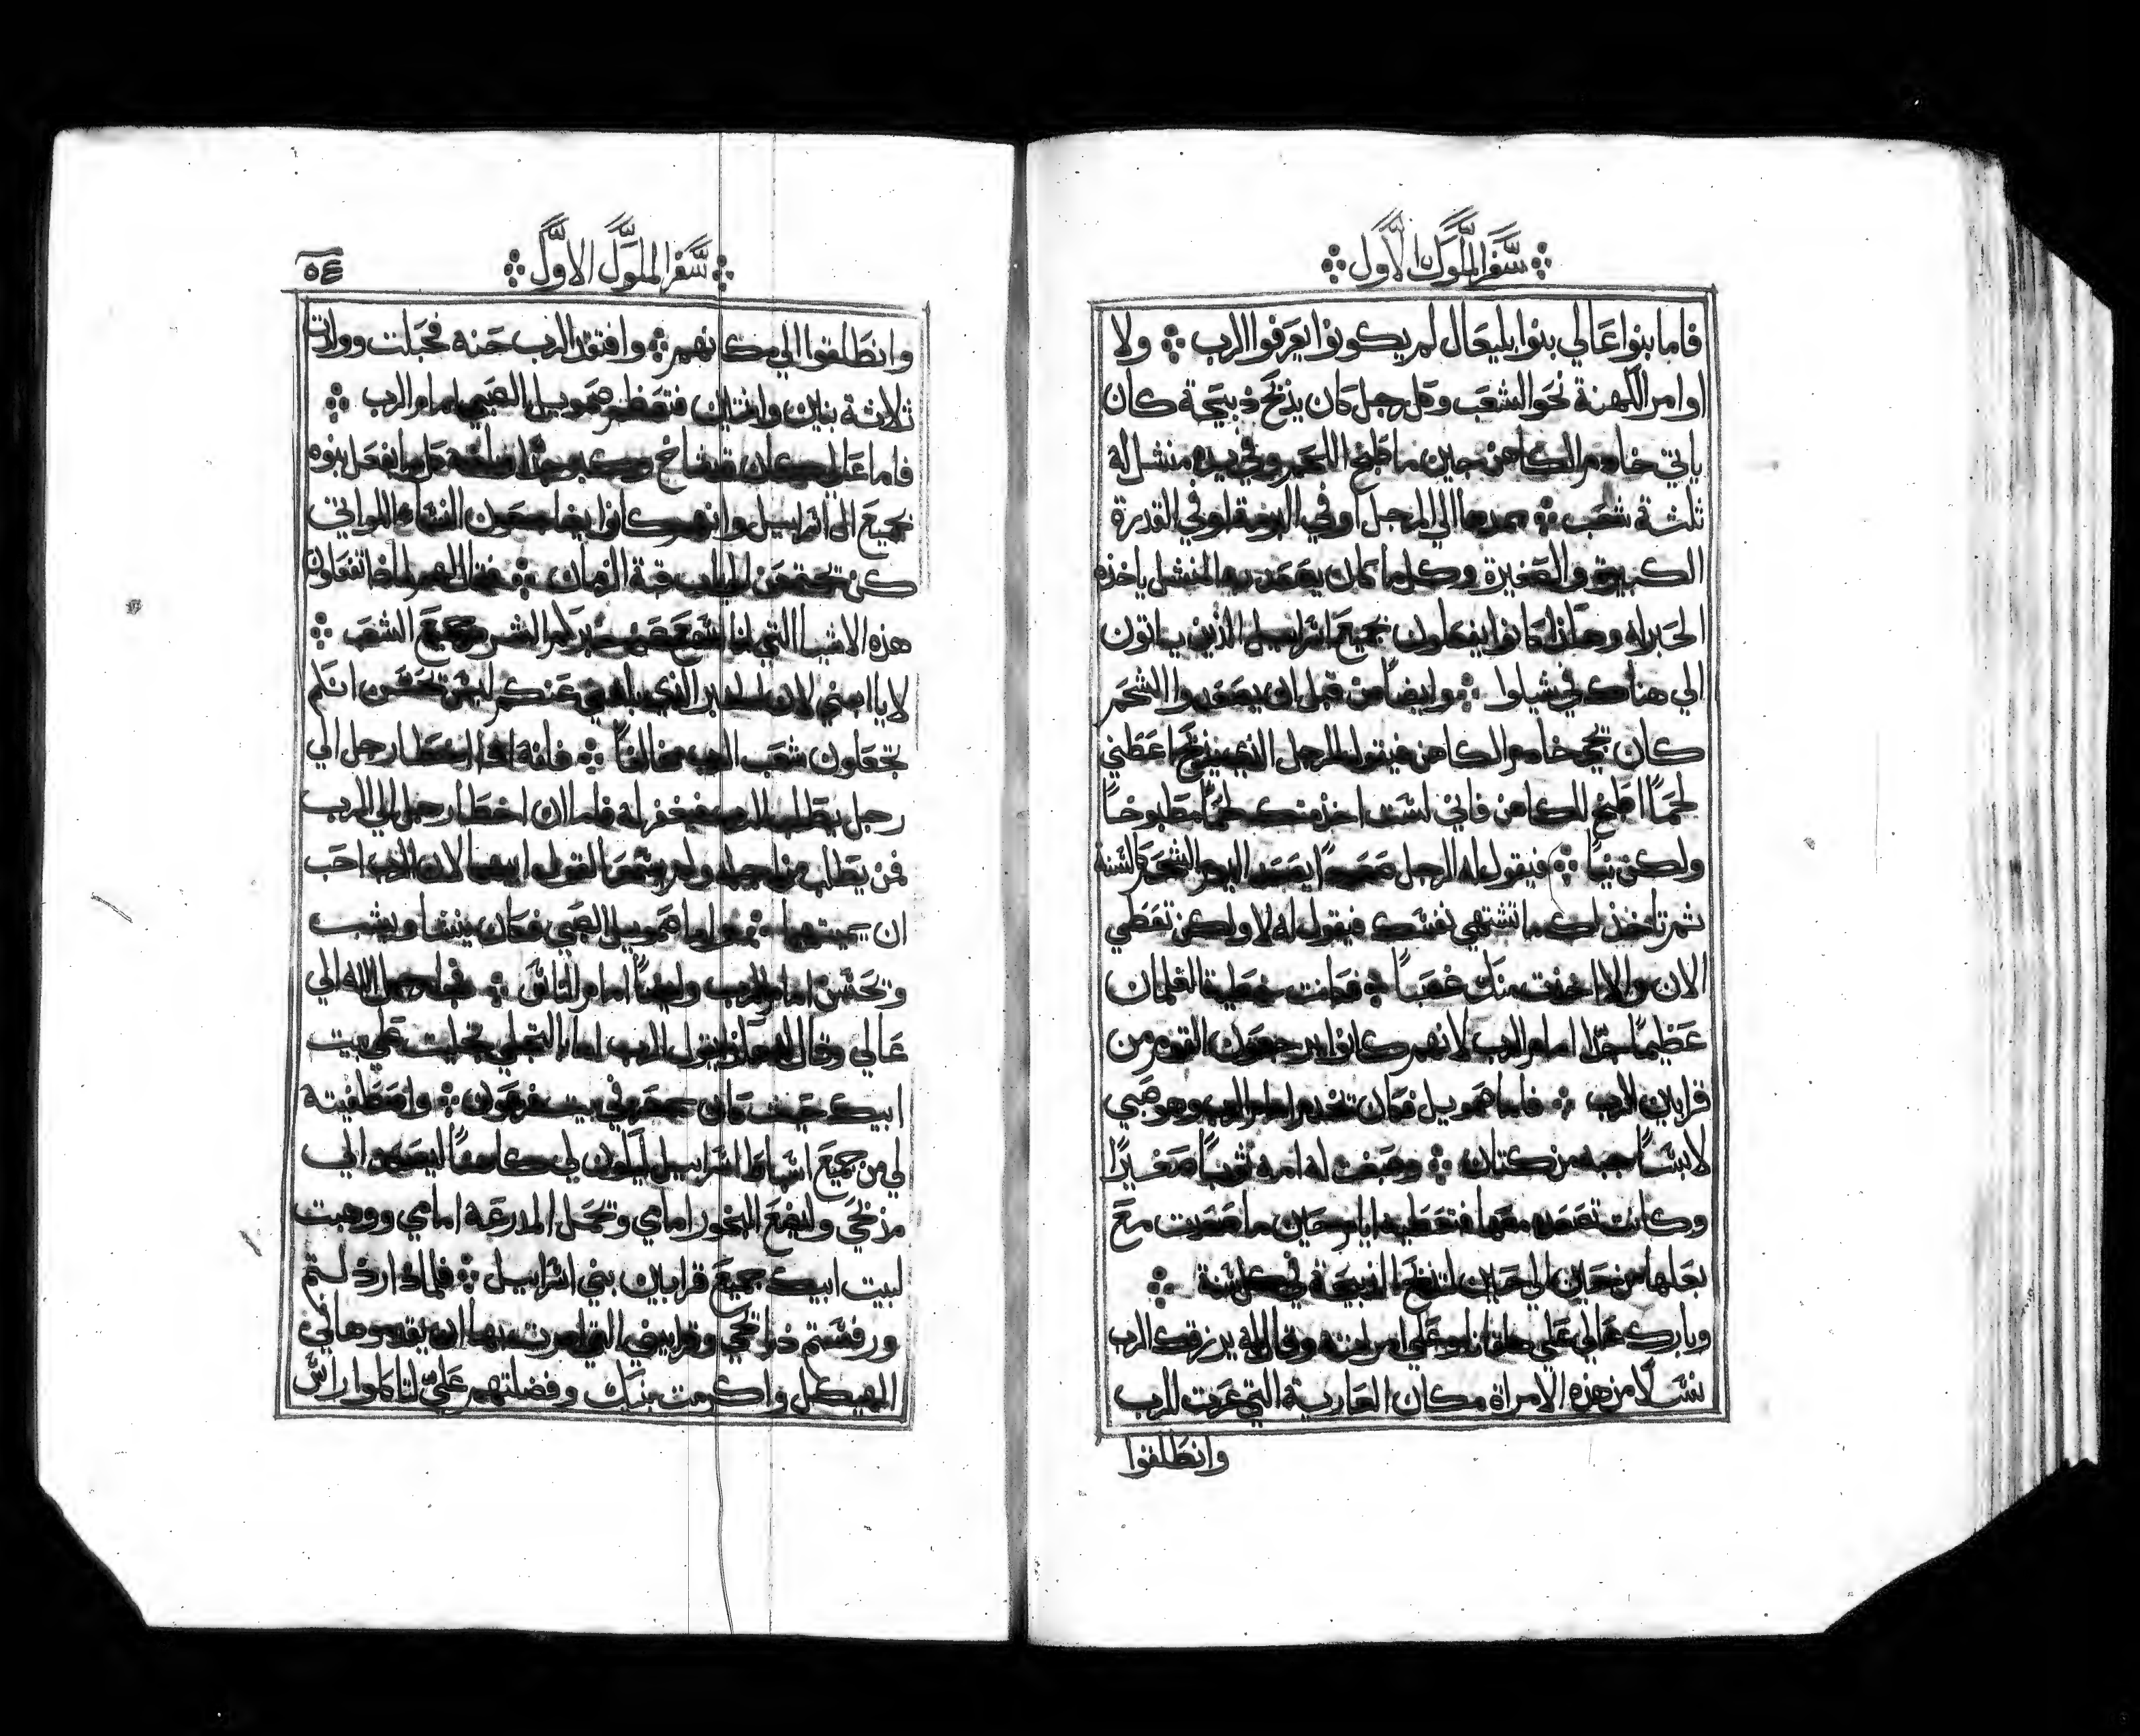 سفر الملوك الاول
فاما بنوا عالي بنوا بليعال لم يكونوا يعرفوا الرب ولا
اوامر الكهنة نحو الشعب وكل رجل كان يذبح ذبيحة كان
ياتي خادم الكاهن حين ما طبخ اللحم وفي يده منشل له
ثلثة شعب الي المرجل او في البرمة او في القدرة
الكبيرة والصغيرة وكل ما كان يصعد به المنشل ياخذه
الحبر له وهكذا كانوا يفعلون بجميع اسراييل الذين ياتون
الي هناك في شيلوا وايضا من قبل ان يصعدوا الشحم
كان يجي خادم الكاهن فيقول للرجل الذي يذبح اعطني
لحما اطبخ للكاهن فاني لست اخذ منك لحما مطبوخا
ولكن نيا فيقول له الرجل يصعد الشحم كالسنة
ثم تاخذ لك ما تشتهي نفسك فيقول له لا ولكن تعطي
الان والا اخذت منك غصبا فكانت خطية الغلمان
عظيما جدا امام الرب لانهم كانوا القوم من
قرابين الرب فاما صمويل فكان تخدم امام الرب وهو صبي
لابسا جبه من كتان وصنعت له امه ثوبا صغيرا
وكانت تصعده معها فتعطيه اياه حين ما صعدت مع
بعلها من حين الي حين لتذبح الذبيحة في كل سنة
وبارك عالي علي حلقانا وعلي امراته وقال له يرزقك الرب
نسلا من هذه الامراة مكان العارية التي عرت للرب
وانطلقوا
سفر الملوك الاول
٥٤
وانطلقوا الي مكانهم وافتقد الرب حنه فحبلت وولدت
ثلاثة بنين وابنتين فتعظم صمويل الصبي امام الرب
فاما عالي كان قد شاخ وكبر جدا كل ما يفعل بنوه
بجميع ال اسراييل وانهم كانوا يضاجعون النساء اللواتي
كن تجتمعن الي باب قبة الزمان فقال لهم لماذا تفعلون
هذه الاشيا التي انا اسمع الشر من جميع الشعب
لا يا ابني لان الخبر الذي بلغني عنكم ليس بحسن انكم
تجعلون شعب الرب مخالفا فانه اذا اخطا رجل الي
رجل يطلب للرب فيغفر له فاما ان اخطا رجل الي الرب
فمن يطلب من اجله ولم يسمعا لقول ابيهما لان الرب احب
ان يميتهما فاما صمويل الصبي فكان ينشا ويشب
وتحسن امام الرب وايضا امام الناس فجا رجل الله الي
عالي وقال له هكذا يقول الرب اما بالتجلي تجليت علي بيت
ابيك حيث كان بمصر في بيت فرعون واصطفيته
لي من جميع اسباط اسراييل ليكون لي كاهنا ليصعد الي
مذبحي وليضع البخور امامي وتحمل المدرعة امامي ووهبت
لبيت ابيك جميع قرابين بني اسراييل فلماذا رذلتم
ورفستم ذبايحي وقرابيني التي امرت بها ان يقدموها في
الهيكل واكرمت بنيك وفضلتهم علي لتاكلوا راس